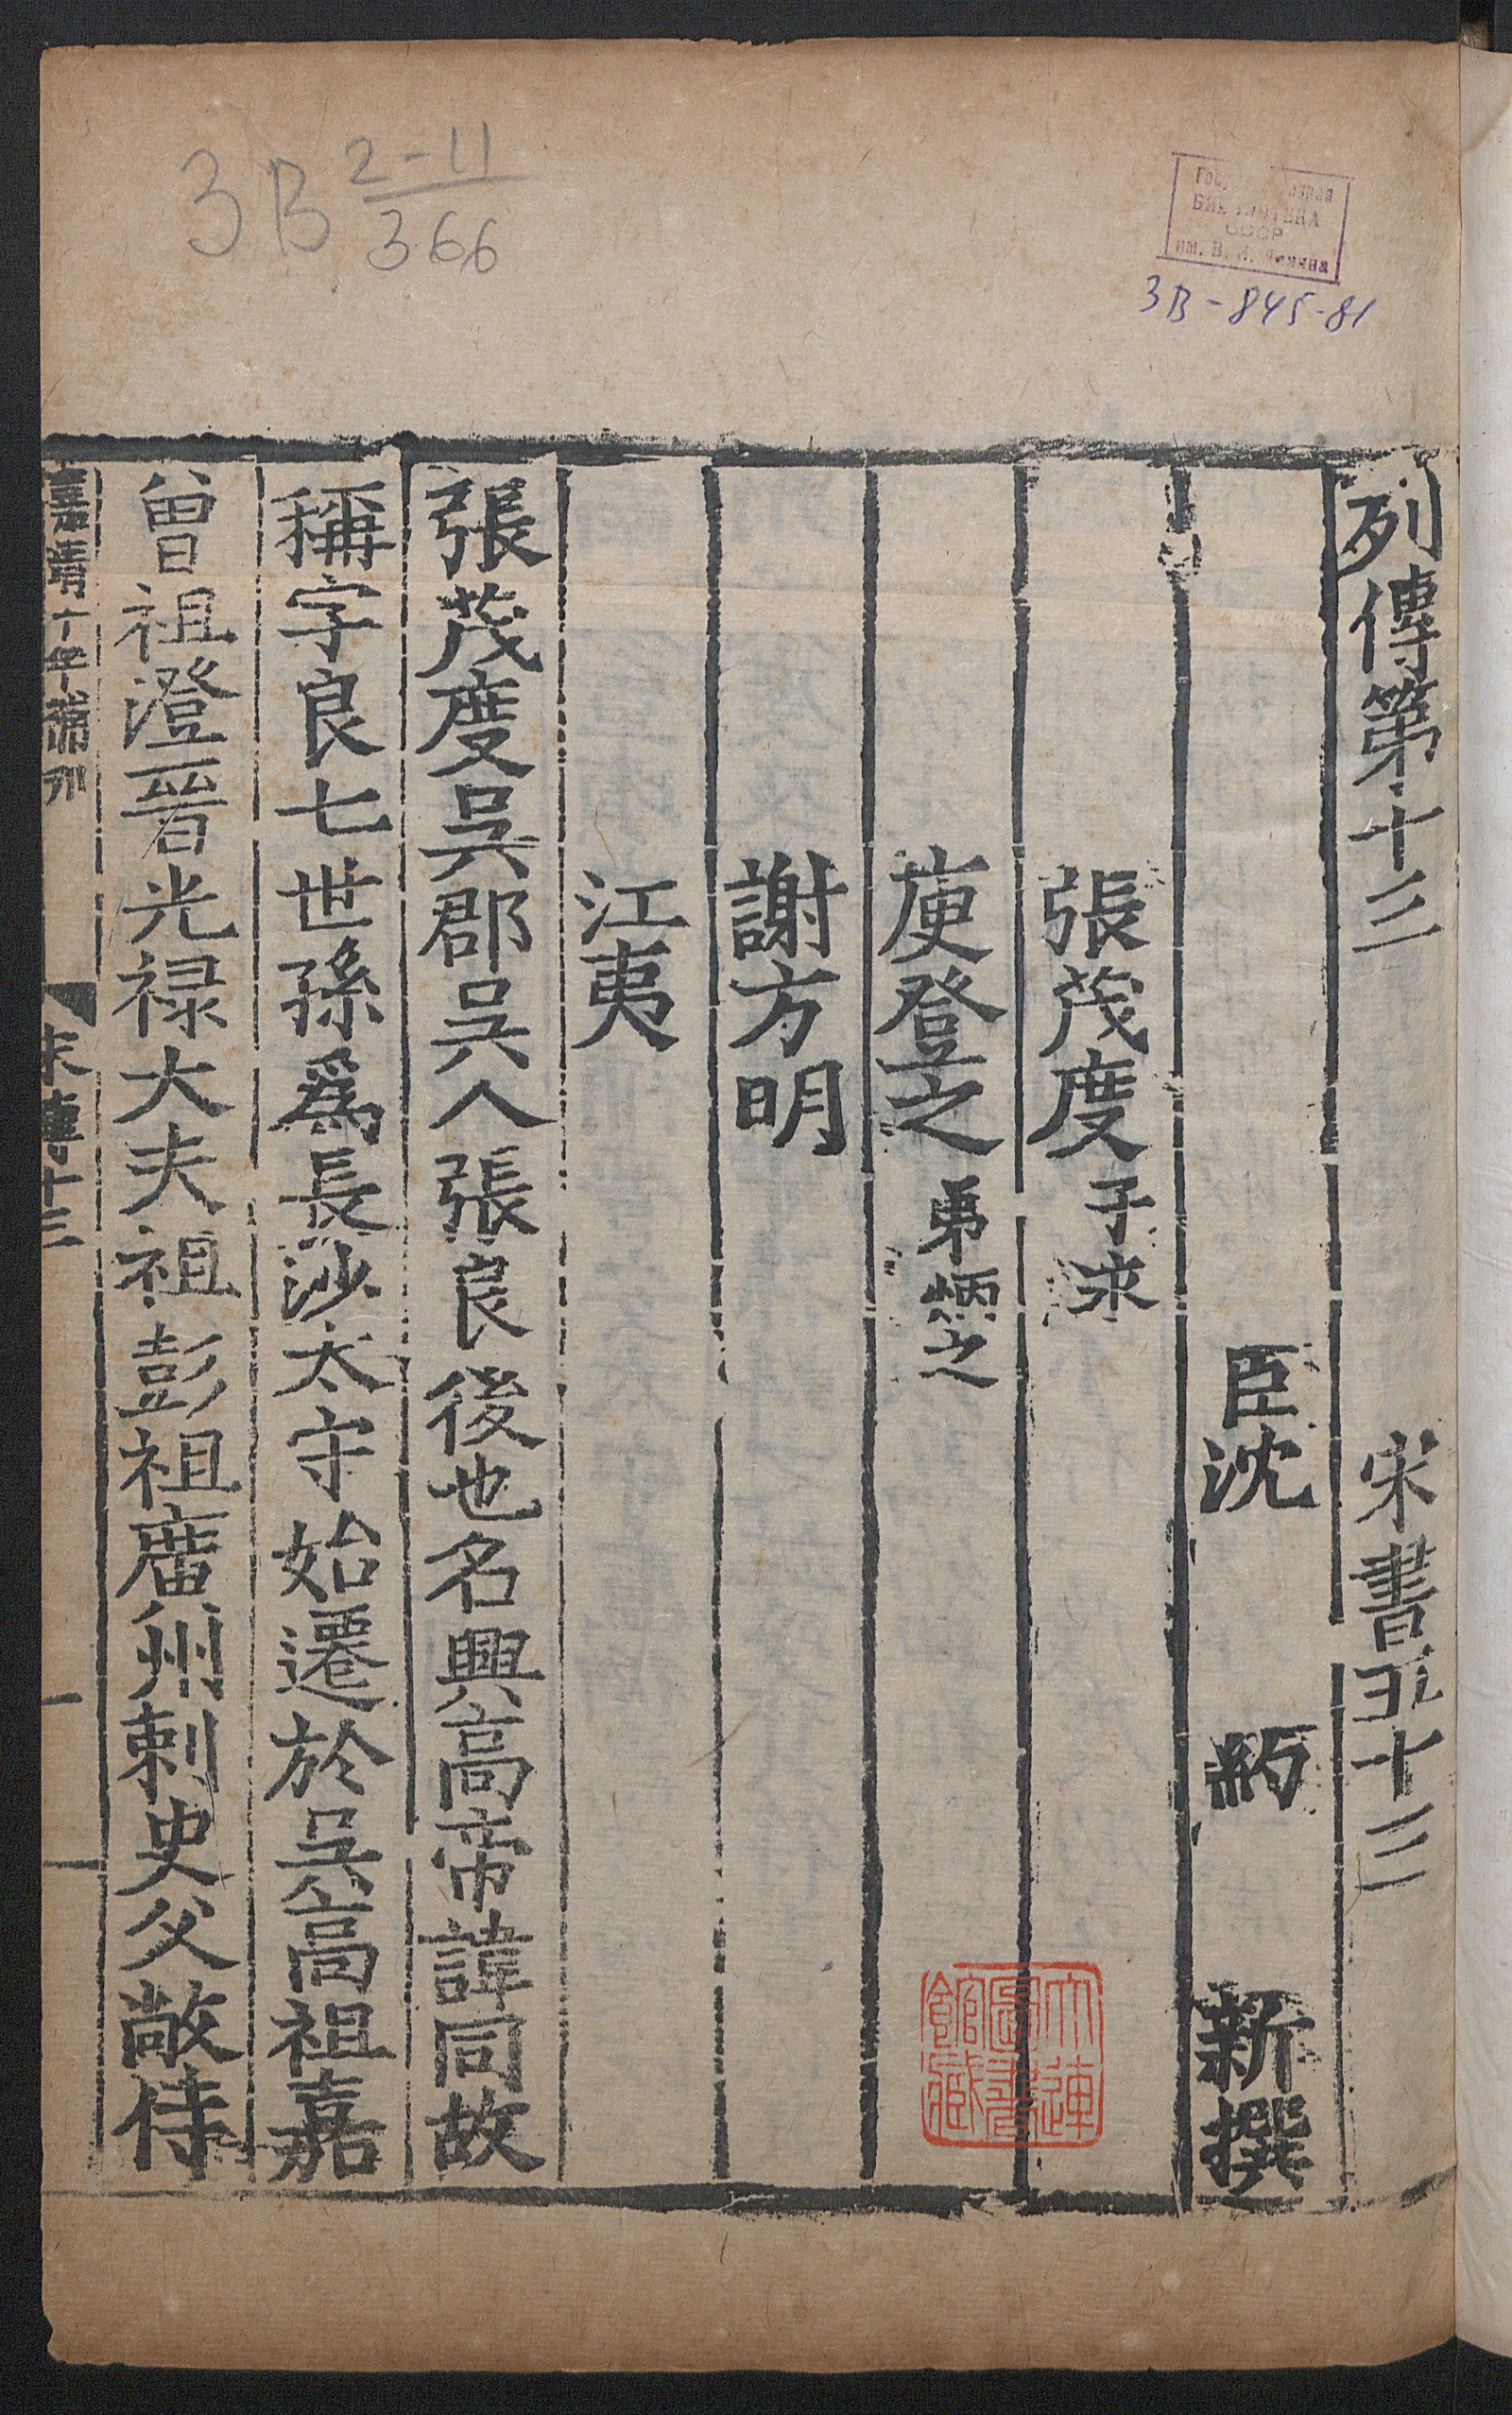 3B 2-11
366
БИБЛИОТЕКА
СССР
им. В. И. Ленина
3B-845-81
列傳第十三 宋書五十三
臣沈 約 新撰
張茂度 子永
庾登之 弟炳之
謝方明
江夷
張茂度吳郡吳人張良後也名與高帝諱同故
稱字良七世孫爲長沙太守始遷於吳高祖嘉
曾祖澄晉光禄大夫祖彭祖廣州刺史父敞侍
嘉靖十年補刊 宋傳十三 一
大連圖書館藏